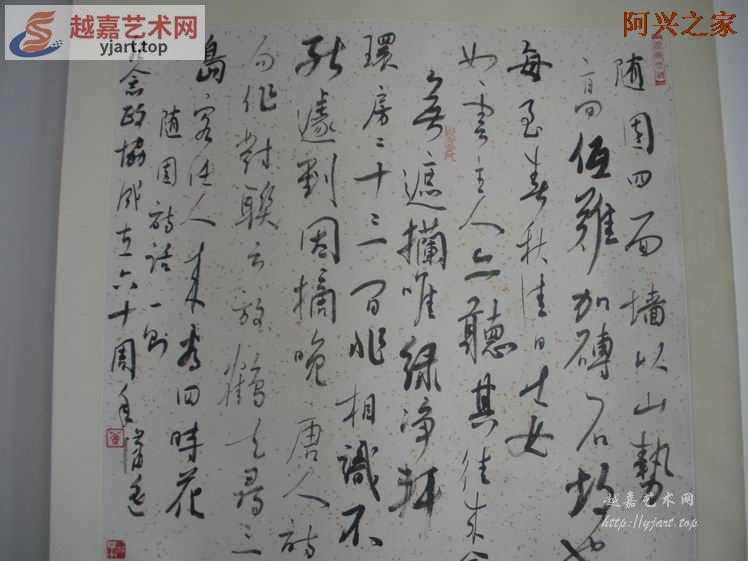 越嘉艺术网
yjart.top
阿兴之家
随園四面墙以山勢
高低難加磚石故也
每至春秋佳日士女
如雲主人亦聽其往来全
無遮攔唯绿净軒
環房二十三间非相識不
能遽到因摘晚唐人詩
句作對聯云放鶴去尋三
島客任人来看四時花
随園詩話一则
念政協成立六十周年
越嘉艺术网
http://yjart.top